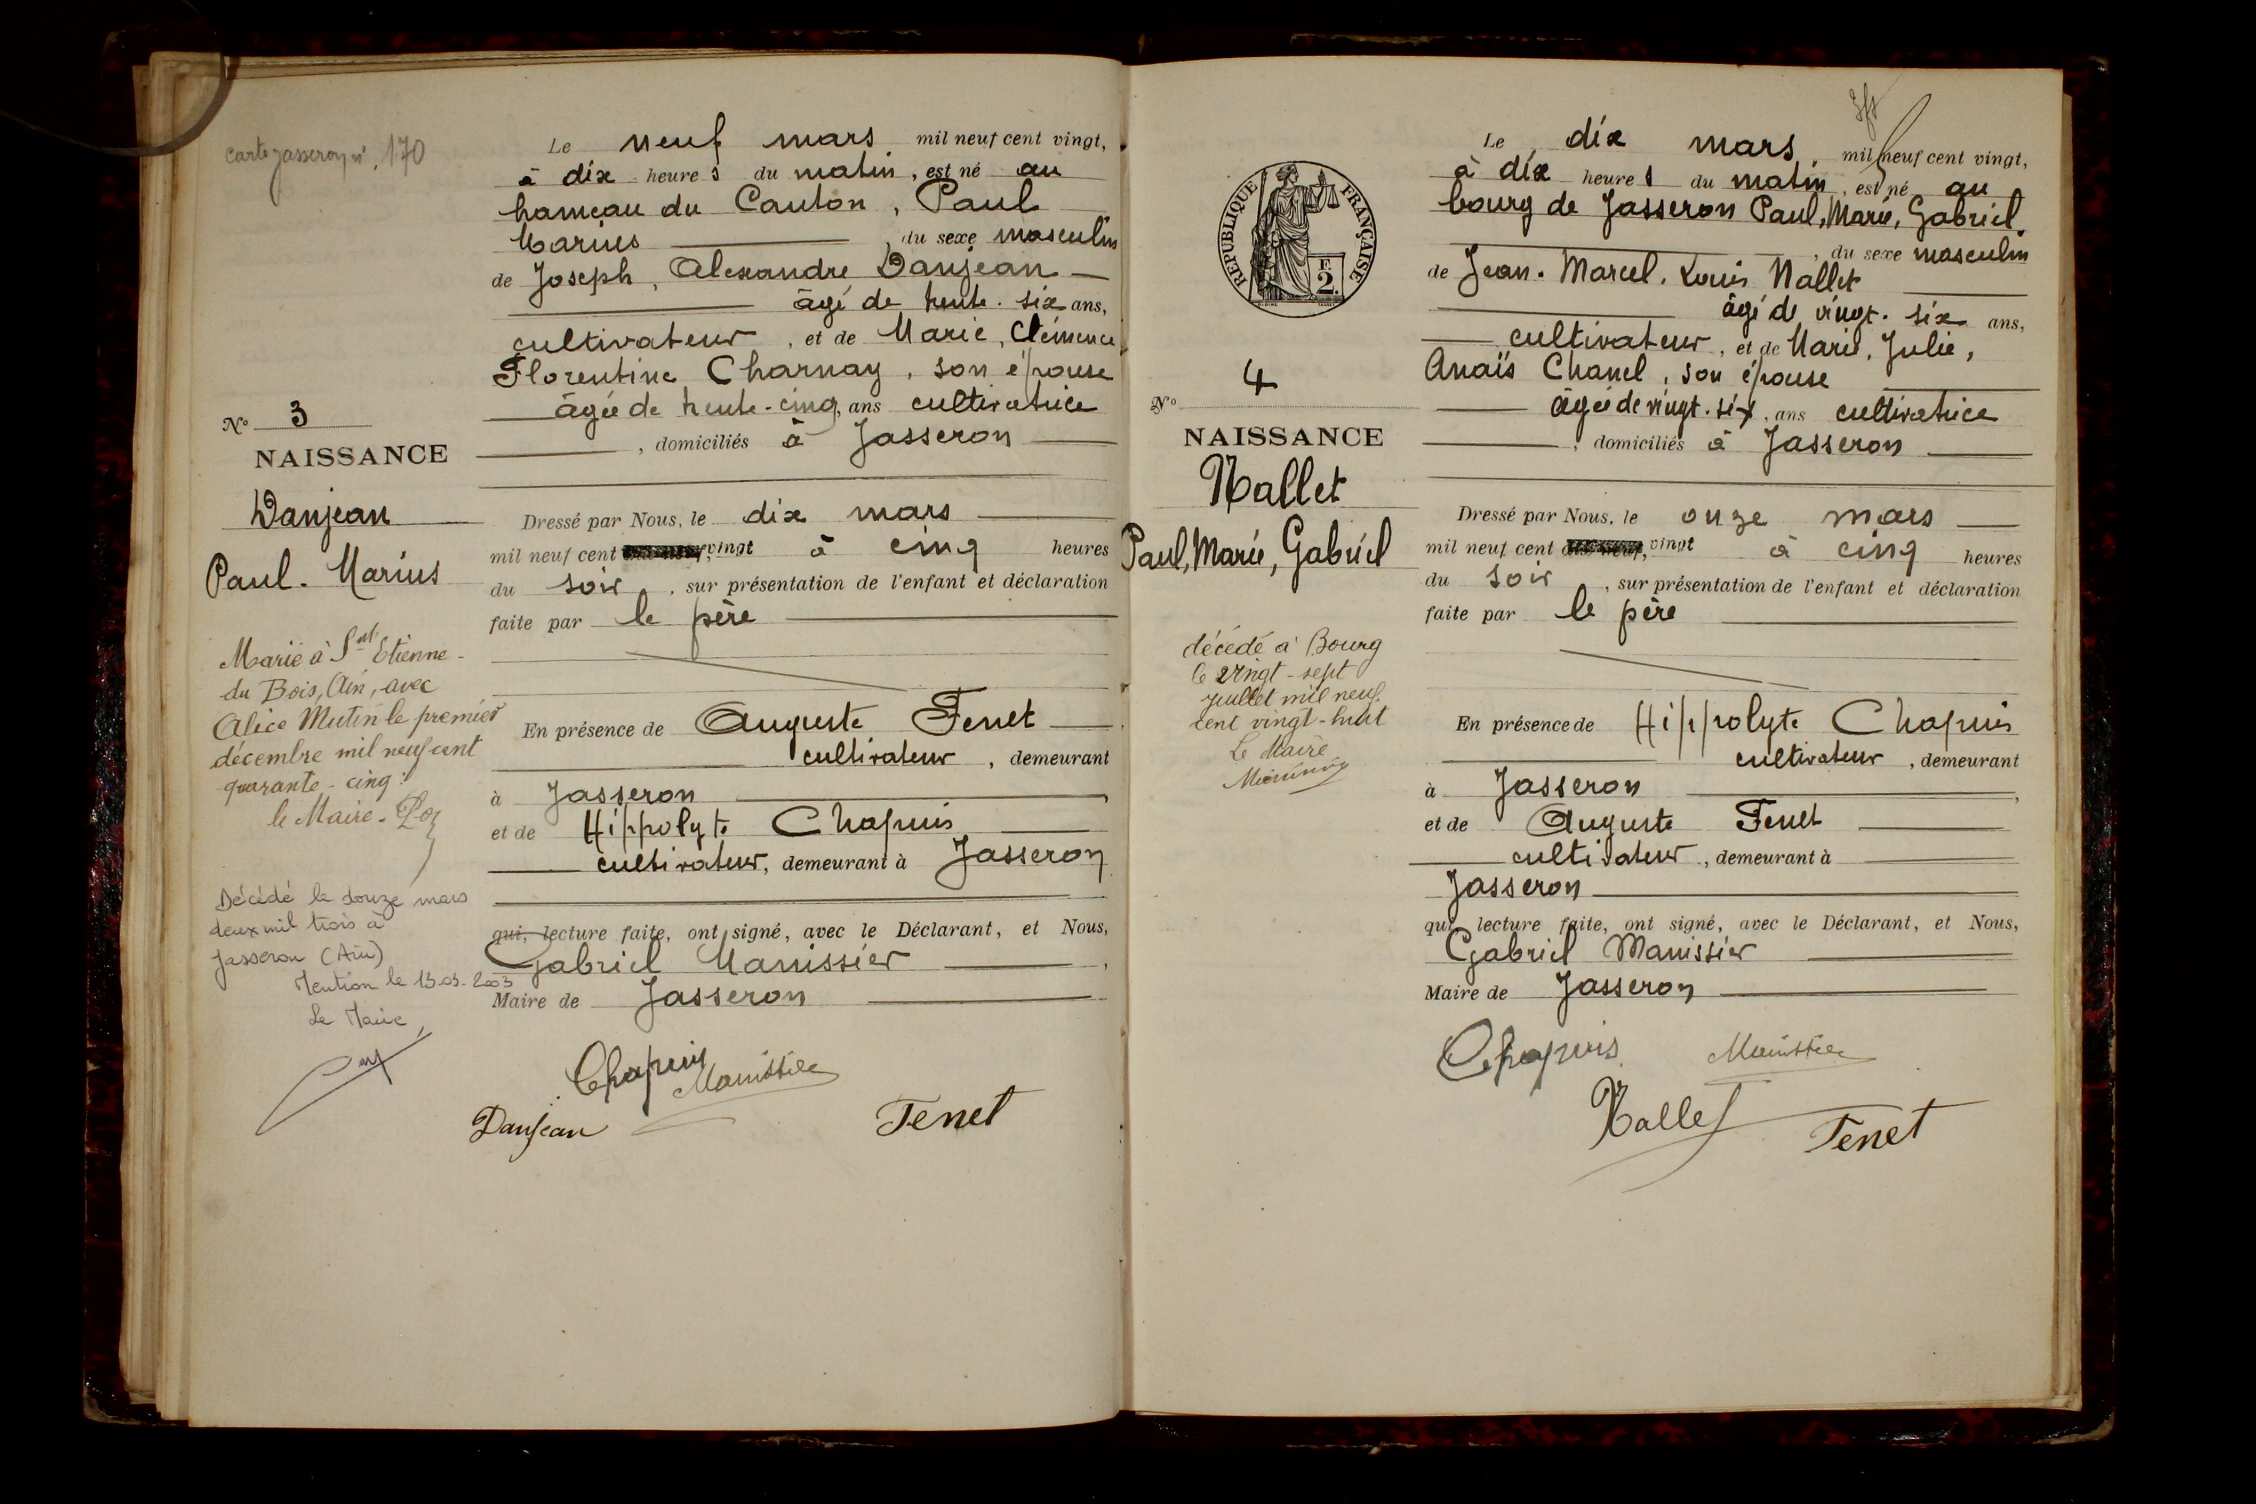 carte Jasseron n° 170
Le neuf mars mil neuf cent vingt,
à dix heures du matin, est né au
hameau du Canton, Paul
Marius, du sexe masculin
de Joseph, Alexandre Danjean
âgé de trente-six ans,
cultivateur, et de Marie, Clémence
Florentine Charnay, son épouse
âgée de trente-cinq, ans cultivatrice
, domiciliés à Jasseron
N° 3
NAISSANCE
Danjean
Paul. Marius
Dressé par Nous, le dix mars
mil neuf cent vingt à cinq heures
du soir, sur présentation de l'enfant et déclaration
faite par le père
Marié à St Etienne-
du Bois, Ain, avec
Alice Mutin le premier
décembre mil neuf cent
quarante-cinq.
le Maire.
En présence de Auguste Tenet
cultivateur, demeurant
à Jasseron
et de Hippolyte Chapuis
cultivateur, demeurant à Jasseron
Décédé le douze mars
deux mil trois à
Jasseron (Ain)
Mention le 13.03.2003
Le Maire
qui, lecture faite, ont signé, avec le Déclarant, et Nous,
Gabriel Manissier
Maire de Jasseron
Chapuis
Manissier
Danjean
Tenet
RÉPUBLIQUE FRANÇAISE
F.
2.
Le dix mars, mil neuf cent vingt,
à dix heures du matin, est né au
bourg de Jasseron Paul, Marie, Gabriel
, du sexe masculin
de Jean. Marcel. Louis Nallet
âgé de vingt-six ans,
cultivateur, et de Marie, Julie,
Anaïs Chanel, son épouse
âgée de vingt-six, ans cultivatrice
, domiciliés à Jasseron
N° 4
NAISSANCE
Nallet
Paul, Marie, Gabriel
Dressé par Nous, le onze mars
mil neuf cent vingt à cinq heures
du soir, sur présentation de l'enfant et déclaration
faite par le père
décédé à Bourg
le vingt-sept
juillet mil neuf
cent vingt-huit
Le Maire
Manissier
En présence de Hippolyte Chapuis
cultivateur, demeurant
à Jasseron,
et de Auguste Tenet
cultivateur, demeurant à
Jasseron
qui, lecture faite, ont signé, avec le Déclarant, et Nous,
Gabriel Manissier
Maire de Jasseron
Chapuis
Manissier
Nallet
Tenet